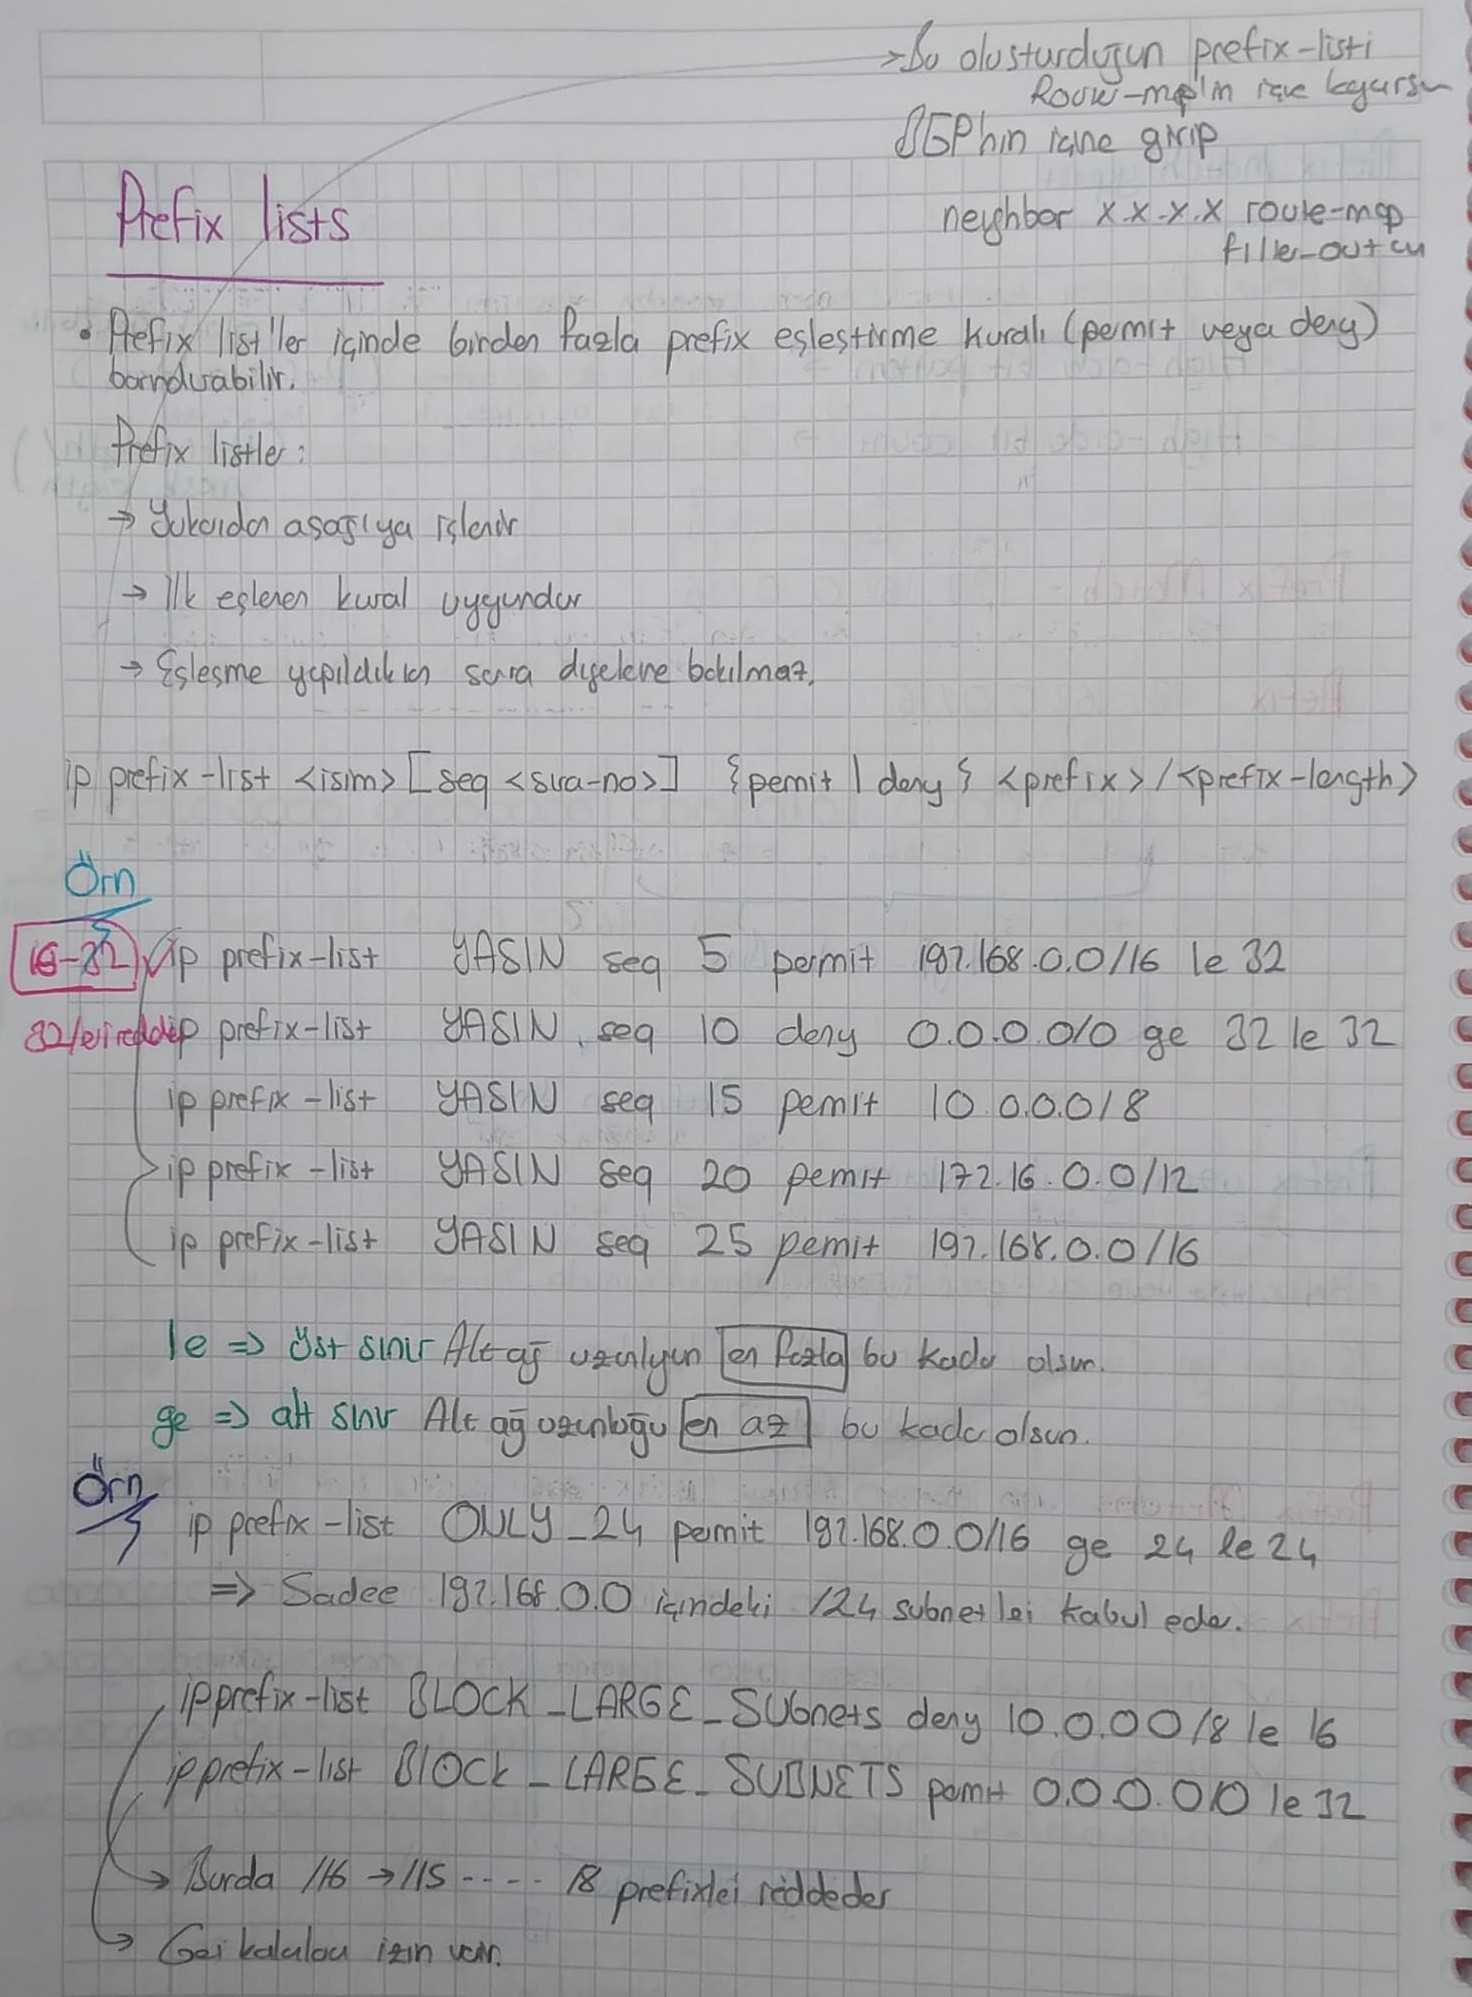 → Bu olusturduğun prefix-listi
Route-map'in içine koyarsın
BGP'nin içine girip
neighbor x.x.x.x route-map
filter-out
Prefix lists
• Prefix list'ler içinde birden fazla prefix eşleştirme kuralı (permit veya deny)
barındırabilir.
Prefix listler:
→ Yukarıdan aşağıya işlenir
→ İlk eşlenen kural uygundur
→ Eşleşme yapıldıktan sonra diğerlerine bakılmaz.
ip prefix-list <isim> [seq <sıra-no>] {permit | deny } <prefix>/<prefix-length>
Örn
16-32 ip prefix-list YASIN seq 5 permit 192.168.0.0/16 le 32
32/leri reddet ip prefix-list YASIN seq 10 deny 0.0.0.0/0 ge 32 le 32
ip prefix-list YASIN seq 15 permit 10.0.0.0/8
ip prefix-list YASIN seq 20 permit 172.16.0.0/12
ip prefix-list YASIN seq 25 permit 192.168.0.0/16
le => üst sınır Alt ağ uzunluğun en fazla bu kadar olsun.
ge => alt sınır Alt ağ uzunluğu en az bu kadar olsun.
Örn
ip prefix-list ONLY_24 permit 192.168.0.0/16 ge 24 le 24
=> Sadece 192.168.0.0 içindeki /24 subnetleri kabul eder.
ip prefix-list BLOCK_LARGE_SUbnets deny 10.0.0.0/8 le 16
ip prefix-list BlOCK_LARGE_SUBNETS permit 0.0.0.0/0 le 32
→ Burda /16 → /15 ---- /8 prefixleri reddeder
→ Geri kalanları izin verir.